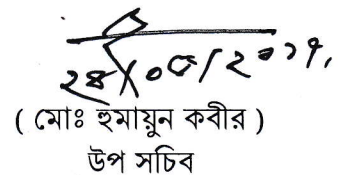 ২৪/০৫/২০১৭
( মোঃ হুমায়ুন কবীর )
উপ সচিব